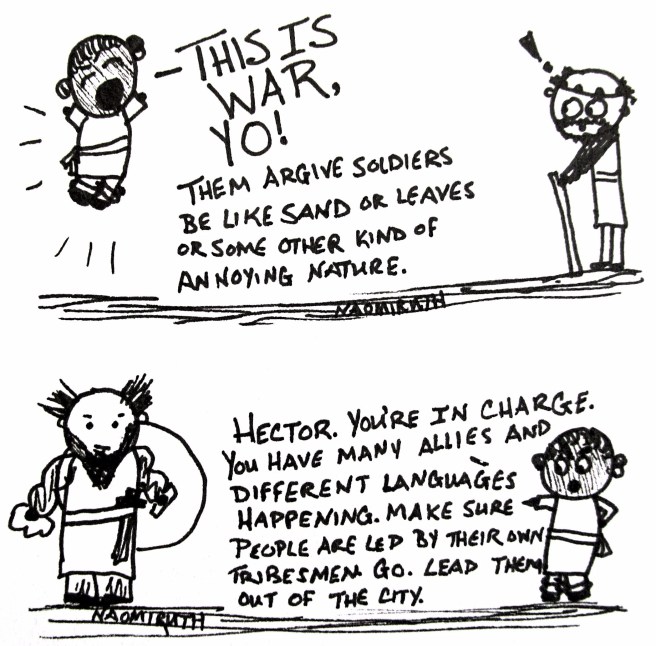 — THIS IS
WAR,
YO!
THEM ARGIVE SOLDIERS
BE LIKE SAND OR LEAVES
OR SOME OTHER KIND OF
ANNOYING NATURE.
NAOMIRUTH
HECTOR. YOU'RE IN CHARGE.
YOU HAVE MANY ALLIES AND
DIFFERENT LANGUAGES
HAPPENING. MAKE SURE
PEOPLE ARE LED BY THEIR OWN
TRIBESMEN. GO. LEAD THEM
OUT OF THE CITY.
NAOMIRUTH